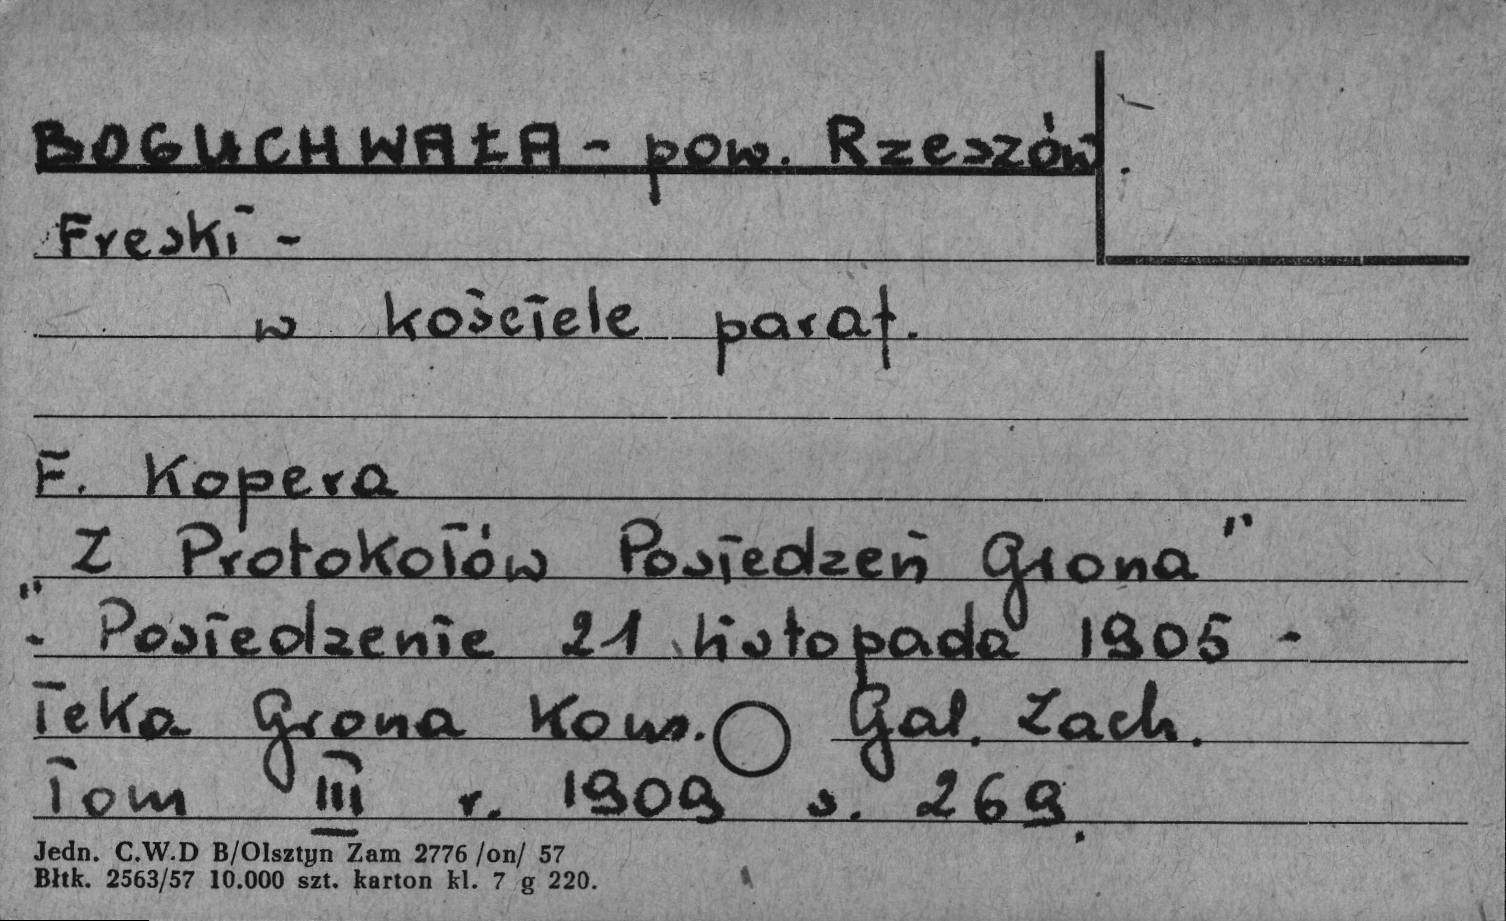 BOGUCHWAŁA - pow. Rzeszów.
Freski -
w kościele paraf.
F. Kopera
Z Protokołów Posiedzeń Grona"
"- Posiedzenie 21 listopada 1905 -
Teka Grona Kons. Gal. Zach.
Tom III r. 1909 s. 269.
Jedn. C.W.D B/Olsztyn Zam 2776 /on/ 57
Błtk. 2563/57 10.000 szt. karton kl. 7 g 220.